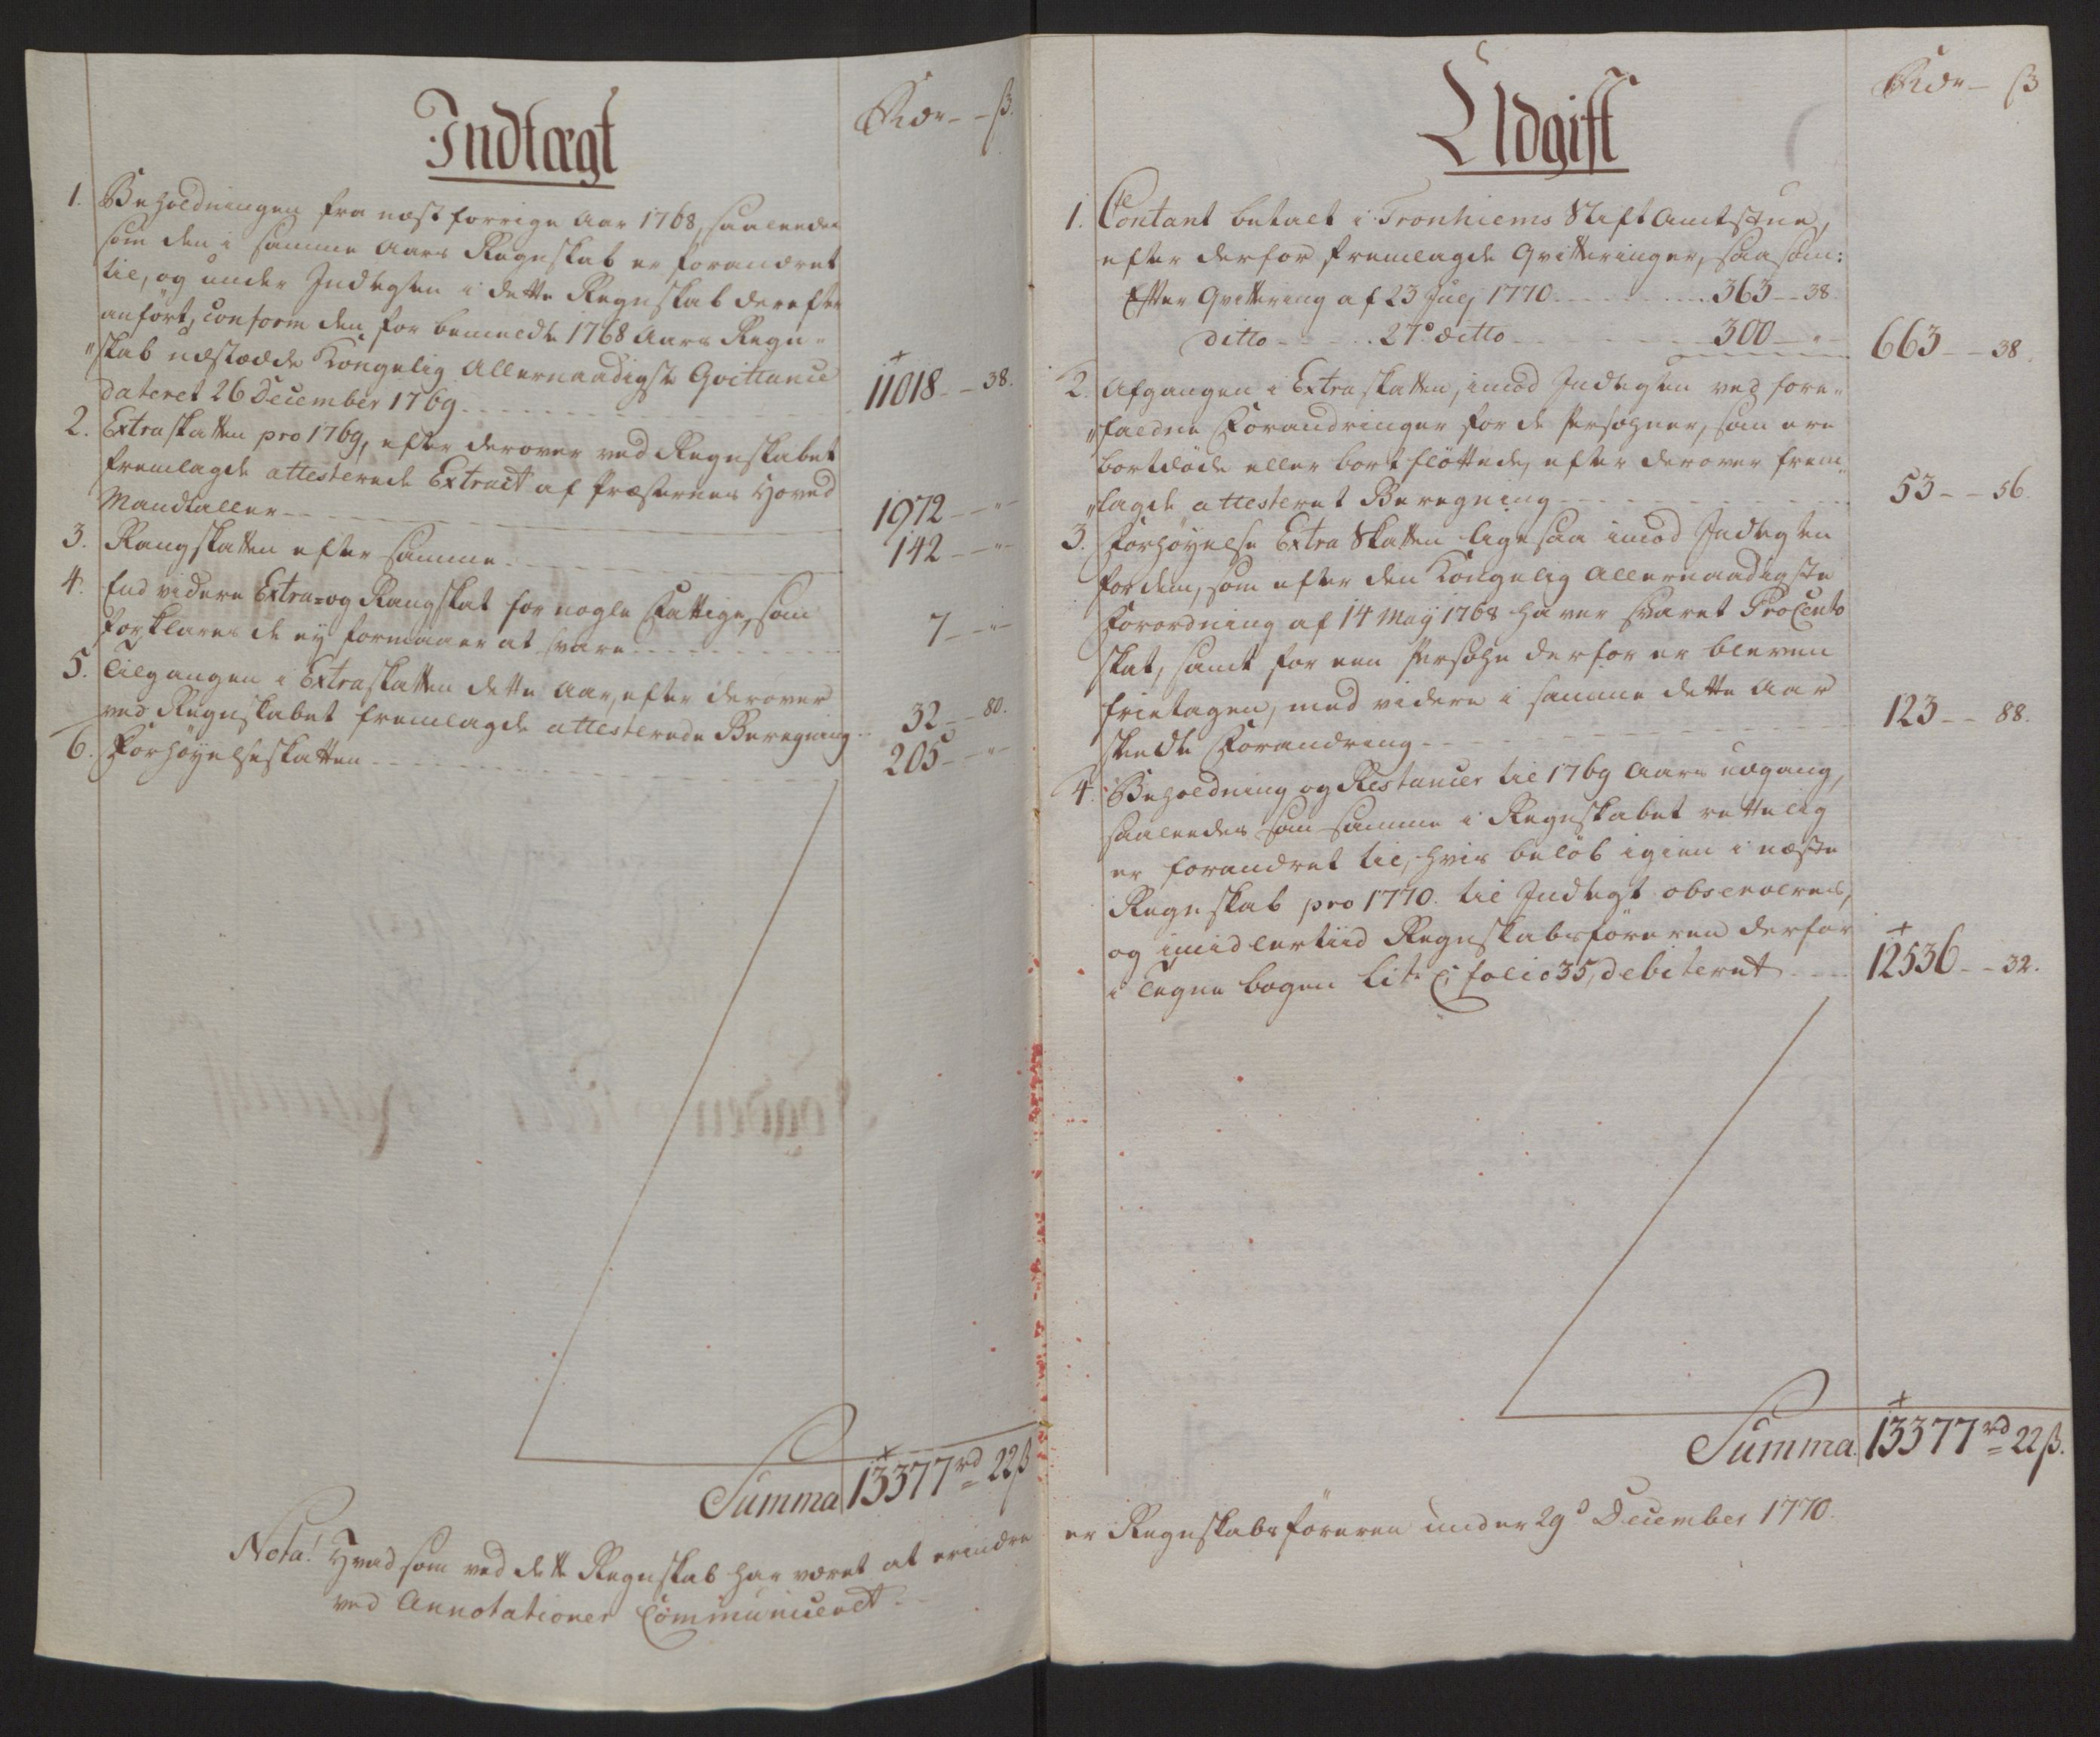 Indtægt
Rdr - - ß.
1. Beholdningen fra næstforrige Aar 1768, saaleedes
som den i samme Aars Regnskab er forandret
til, og under Indtægten i dette Regnskab derefter
anført, conform den for bemeldte 1768 Aars Regn-
"skab udstædde Kongelig Allernaadigste Qvittance
dateret 26 December 1769 - - - 11018 - - 38.
2. Extraskatten pro 1769, efter derover ved Regnskabet
fremlagde attesterede Extract af Præsternes Hoved
Mandtaller - - - 1972 - - "
3. Rangskatten efter samme - - - 142 - - "
4. End videre Extra= og Rangskat for nogle Fattige, som
forklares de ey formaaer at svare - - - 7 - - "
5. Tilgangen i Extraskatten dette Aar, efter derover
ved Regnskabet fremlagde attesterede Beregning - - 32 - - 80.
6. Forhøyelseskatten - - - 205 - - "
Summa 13377 rd 22 ß
Nota! Hvad som ved dette Regnskab har været at erindre
ved Annotationer Communicerdt.
Udgift
Rdr - ß
1. Contant betalt i Tronhiems Stift Amtstue,
efter derfor fremlagde Qvitteringer, saasom:
Efter Qvittering af 23 Julj 1770 - - - 363 - 38.
ditto - - - 27de ditto - - - 300 - " - 663 - - 38.
2. Afgangen i Extraskatten, imod Indtægten ved fore-
"faldne Forandringer for de Persohner, som ere
bortdøde eller bortfløttede, efter derover frem-
"lagde attesteret Beregning - - - 53 - - 56.
3. Forhøyelse Extra Skatten ligesaa imod Indtægten
for dem, som efter den Kongelig Allernaadigste
Forordning af 14 Maij 1768 haver svaret ProCento
Skat, samt for een Persohn derfor er bleven
frietagen, med videre i samme dette Aar
skeedte Forandring - - - 123 - - 88.
4. Beholdning og Restancer til 1769 Aars udgang,
saaleedes som samme i Regnskabet rettelig
er forandret til, hvis beløb igien i næste
Regnskab pro 1770. til Indtægt observeres,
og imidlertiid Regnskabsføreren derfor
i Tegnebogen Litr. C, folio 35, debiteret - - - 12536 - - 32.
Summa. 13377 rd 22 ß.
er Regnskabsføreren under 29de December 1770.